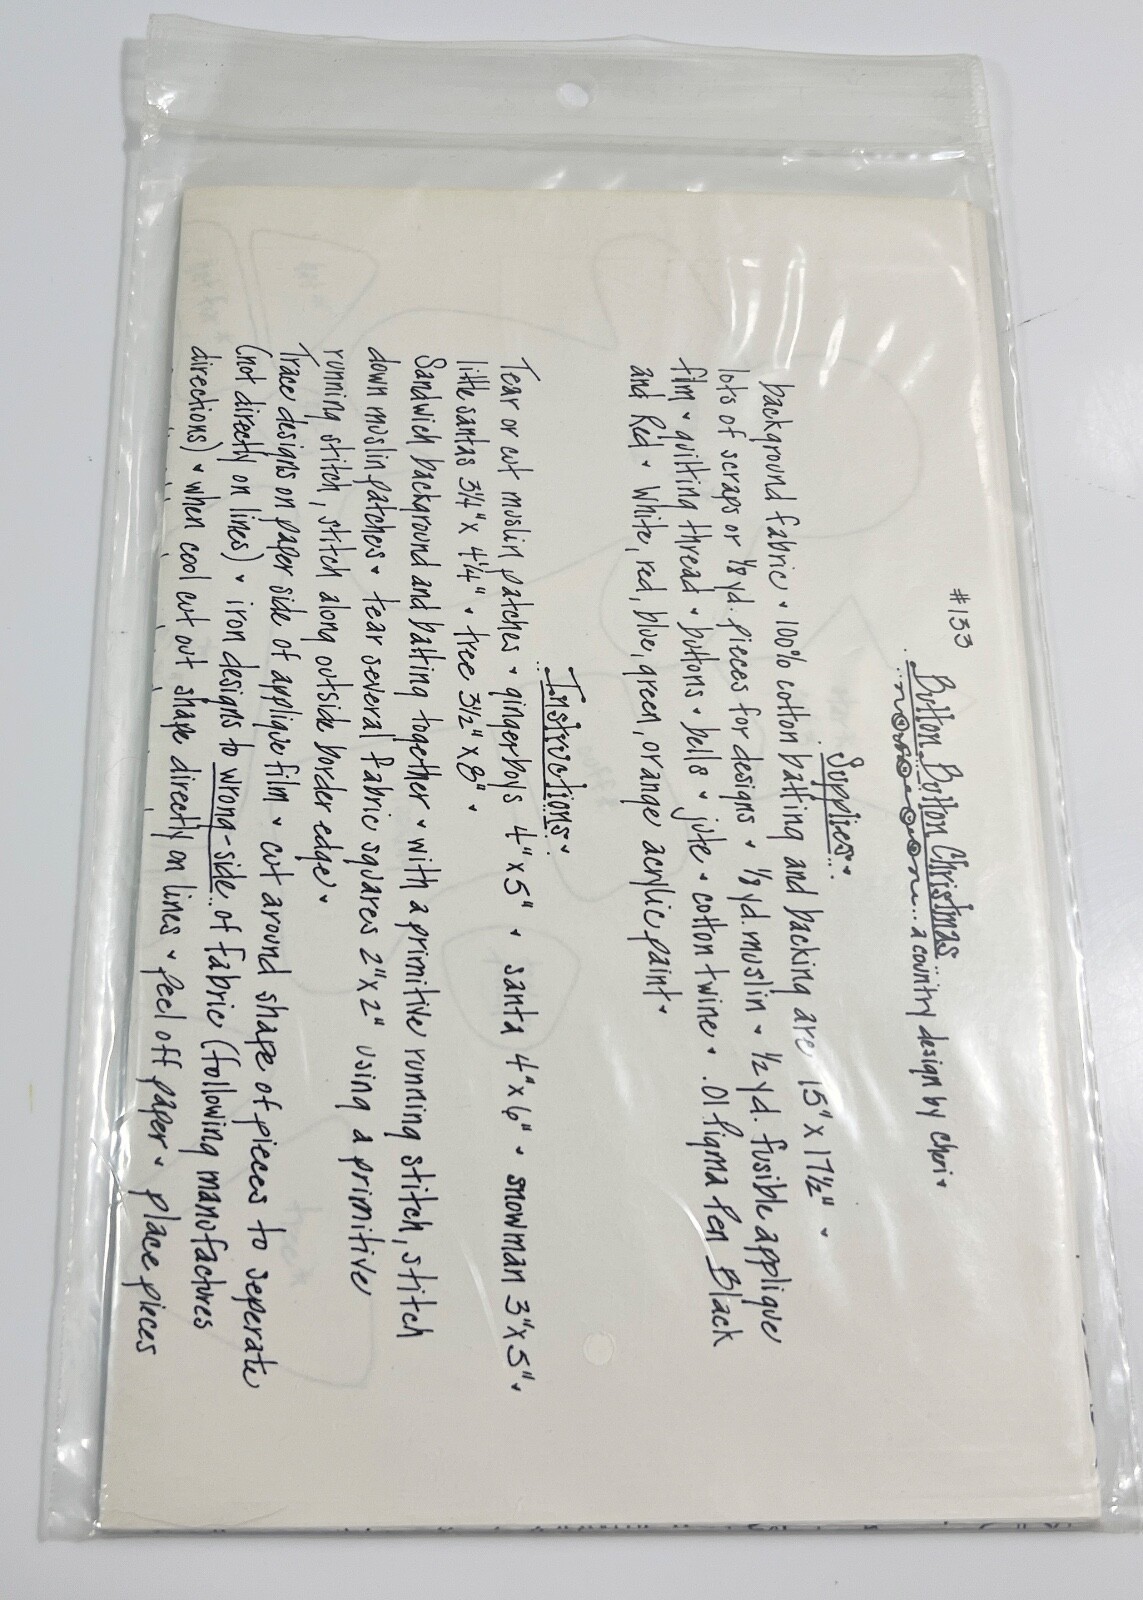 #133
Button Button Christmas
a country design by Cheri
Supplies
background fabric • 100% cotton batting and backing are 15" x 17½" •
lots of scraps or ⅛ yd. pieces for designs • ⅛ yd. muslin • ½ yd. fusible applique
film • quilting thread • buttons • bells • jute • cotton twine • .01 Pigma Pen Black
and Red • White, red, blue, green, orange acrylic paint •
Instructions •
Tear or cut muslin patches • gingerboys 4" x 5" • santa 4" x 6" • snowman 3" x 5" •
little santas 3¼" x 4¼" • tree 3½" x 8" •
Sandwich background and batting together • with a primitive running stitch, stitch
down muslin patches • tear several fabric squares 2" x 2" using a primitive
running stitch, stitch along outside border edge •
Trace designs on paper side of applique film • cut around shape of pieces to seperate
(not directly on lines) • iron designs to wrong-side of fabric (following manufactures
directions) • when cool cut out shape directly on lines • peel off paper • place pieces